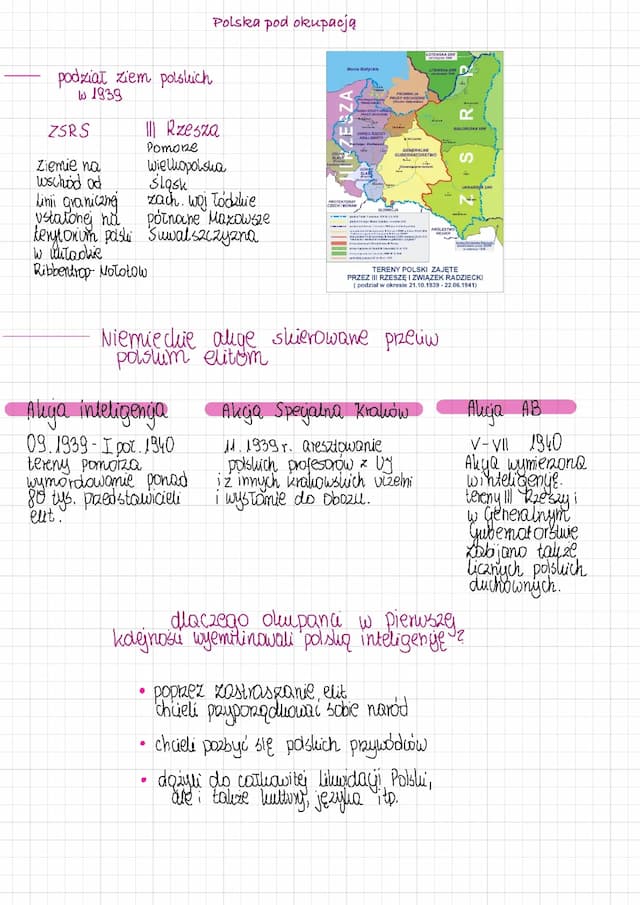 Polska pod okupacją
podział ziem polskich
w 1939
ZSRS
ziemie na
wschód od
linii granicznej
ustalonej na
terytorium polski
w układzie
Ribbentrop-Mołotow
III Rzesza
Pomorze
Wielkopolska
Śląsk
zach. woj łódzkie
północne Mazowsze
Suwalszczyzna
Morze Bałtyckie
III RZESZA
Z S R R
GENERALNE
GUBERNATORSTWO
SŁOWACJA
TERENY POLSKI ZAJĘTE
PRZEZ III RZESZĘ I ZWIĄZEK RADZIECKI
( podział w okresie 21.10.1939 - 22.06.1941)
Niemieckie akcje skierowane przeciw
polskim elitom
Akcja inteligencja
09.1939 - I poł. 1940
tereny pomorza
wymordowanie ponad
80 tys. przedstawicieli
elit.
Akcja Specjalna Kraków
11.1939 r. aresztowanie
polskich profesorów z UJ
i z innych krakowskich uczelni
i wysłanie do obozu.
Akcja AB
V-VII 1940
Akcja wymierzona
w inteligencję.
tereny III Rzeszy i
w Generalnym
Gubernatorstwie
zabijano także
licznych polskich
duchownych.
dlaczego okupanci w pierwszej
kolejności wyeliminowali polską inteligencję?
• poprzez zastraszanie elit
chcieli przyporządkować sobie naród
• chcieli pozbyć się polskich przywódców
• dążyli do całkowitej likwidacji Polski,
ale i także kultury, języka itp.